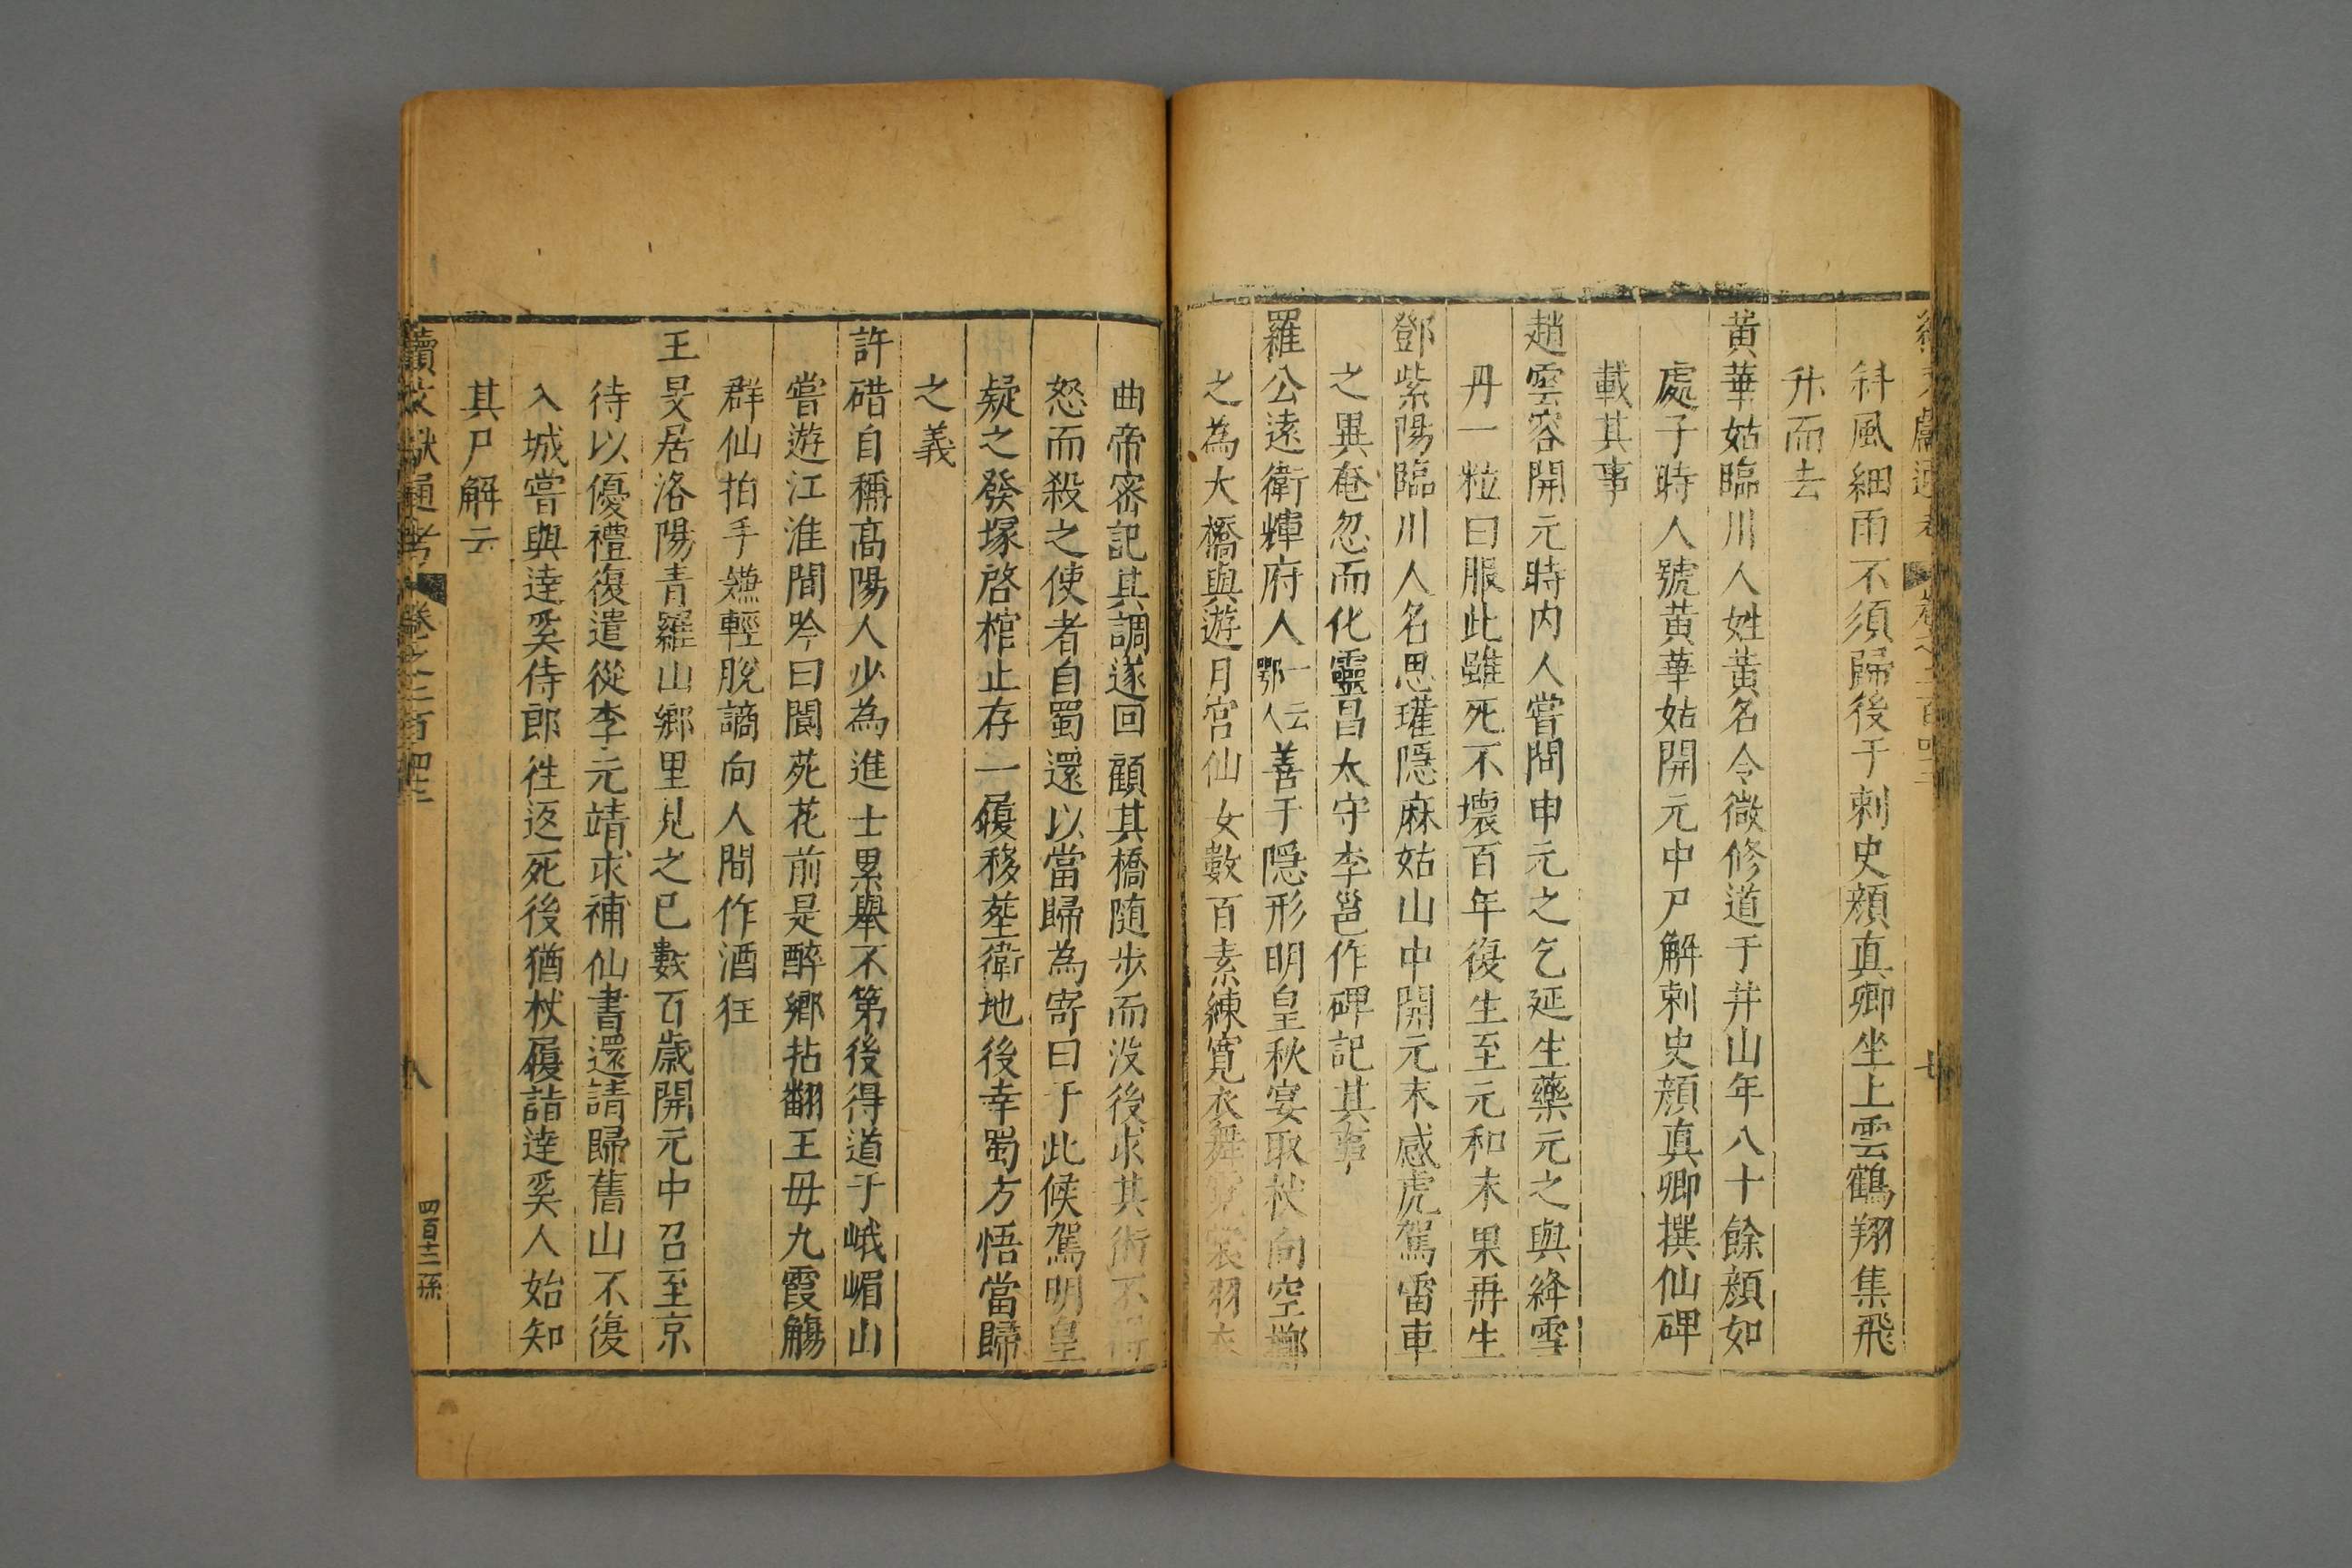 續文獻通考 卷之二百四十三 七
斜風細雨不須歸後于刺史顏真卿坐上雲鶴翔集飛
升而去
黃華姑臨川人姓黃名令微修道于井山年八十餘顏如
處子時人號黃華姑開元中尸解刺史顏真卿撰仙碑
載其事
趙雲容開元時内人嘗問申元之乞延生藥元之與絳雪
丹一粒曰服此雖死不壞百年復生至元和末果再生
鄧紫陽臨川人名思瓘隱麻姑山中開元末感虎駕雷車
之異奄忽而化靈昌太守李邕作碑記其事
羅公遠衛輝府人一云鄂人善于隱形明皇秋宴取杖向空擲
之為大橋與遊月宮仙女數百素練寬衣舞霓裳羽衣
曲帝密記其調遂回顧其橋隨步而没後求其術不得
怒而殺之使者自蜀還以當歸為寄曰于此候駕明皇
疑之發塚啓棺止存一履移塟衛地後幸蜀方悟當歸
之義
許碏自稱高陽人少為進士累舉不第後得道于峨嵋山
嘗遊江淮間吟曰閬苑花前是醉鄉拈翻王母九霞觴
群仙拍手嫌輕脫謫向人間作酒狂
王旻居洛陽青羅山鄉里見之已數百歲開元中召至京
待以優禮復遣從李元靖求補仙書還請歸舊山不復
入城嘗與逹奚侍郎徃返死後猶杖履詣逹奚人始知
其尸解云
續文獻通考 卷之二百四十三 八 四百十二 孫